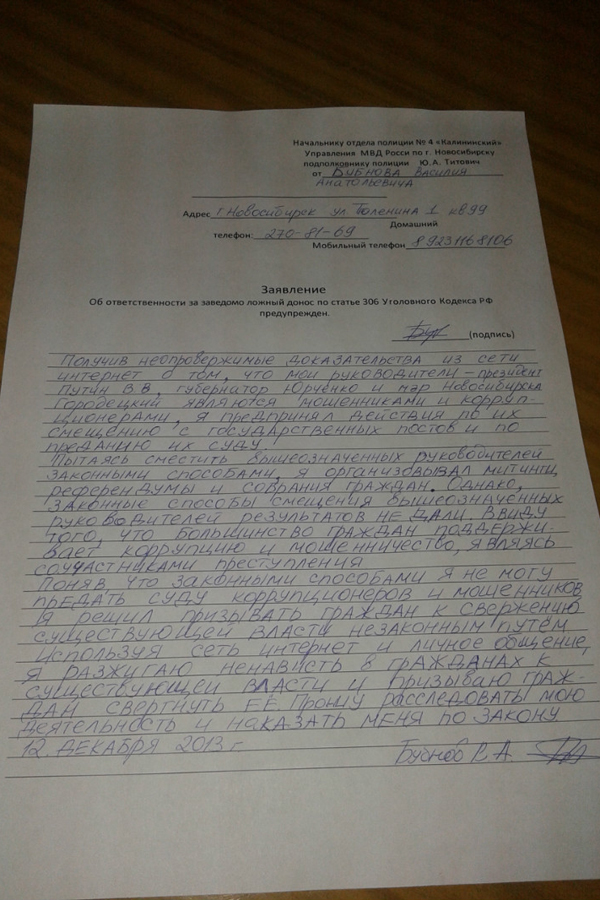 Начальнику отдела полиции № 4 «Калининский»
Управления МВД Росси по г. Новосибирску
подполковнику полиции Ю.А. Титович
от Бубнова Василия
Анатольевича
Адрес г. Новосибирск ул. Тюленина 1 кв 99
Домашний
телефон: 270-81-69
Мобильный телефон 89231168106
Заявление
Об ответственности за заведомо ложный донос по статье 306 Уголовного Кодекса РФ
предупрежден.
(подпись)
Получив неопровержимые доказательства из сети
интернет о том, что мои руководители – президент
Путин В.В, губернатор Юрченко и мэр Новосибирска
Городецкий являются мошенниками и корруп-
ционерами, я предпринял действия по их
смещению с государственных постов и по
преданию их суду
Пытаясь сместить вышеозначенных руководителей
законными способами, я организовывал митинги,
референдумы и собрания граждан. Однако,
законные способы смещения вышеозначенных
руководителей результатов не дали. Ввиду
того, что большинство граждан поддержи-
вает коррупцию и мошенничество, являясь
соучастниками преступления
Поняв что законными способами я не могу
предать суду коррупционеров и мошенников
я решил призывать граждан к свержению
существующей власти незаконным путём
Используя сеть интернет и личное общение,
я разжигаю ненависть в гражданах к
существующей власти и призываю граж-
дан свергнуть её. Прошу расследовать мою
деятельность и наказать меня по закону
12. декабря 2013 г Бубнов В.А.